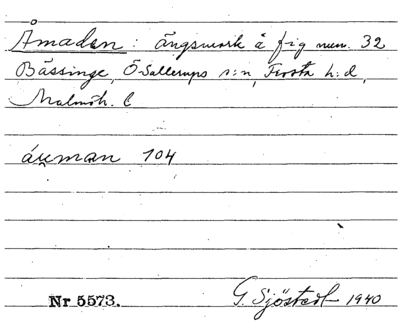 Åmaden: ängsmark å fig num. 32
Bässinge, Ö Sallerups s:n, Frosta h:d,
Malmöh. l
áu̯man 104
Nr 5573. G. Sjöstedt 1940